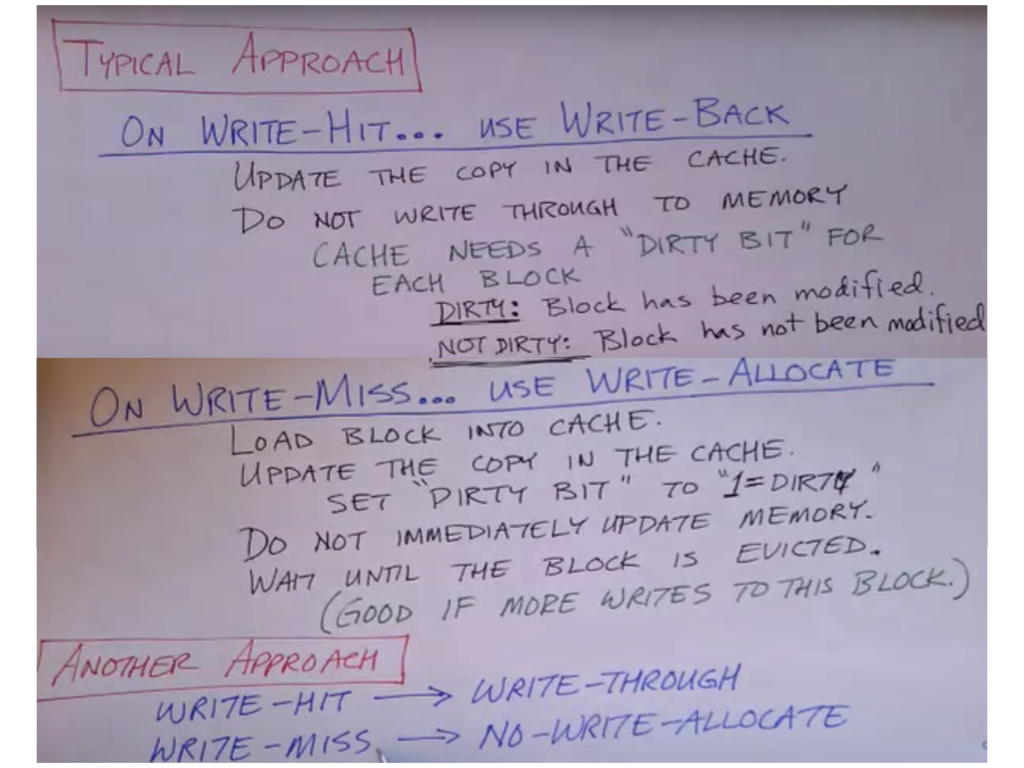 TYPICAL APPROACH
ON WRITE-HIT... USE WRITE-BACK
UPDATE THE COPY IN THE CACHE.
DO NOT WRITE THROUGH TO MEMORY
CACHE NEEDS A "DIRTY BIT" FOR
EACH BLOCK
DIRTY: Block has been modified.
NOT DIRTY: Block has not been modified
ON WRITE-MISS... USE WRITE-ALLOCATE
LOAD BLOCK INTO CACHE.
UPDATE THE COPY IN THE CACHE.
SET "DIRTY BIT" TO "1=DIRTY"
DO NOT IMMEDIATELY UPDATE MEMORY.
WAIT UNTIL THE BLOCK IS EVICTED.
(GOOD IF MORE WRITES TO THIS BLOCK.)
ANOTHER APPROACH
WRITE-HIT → WRITE-THROUGH
WRITE-MISS → NO-WRITE-ALLOCATE